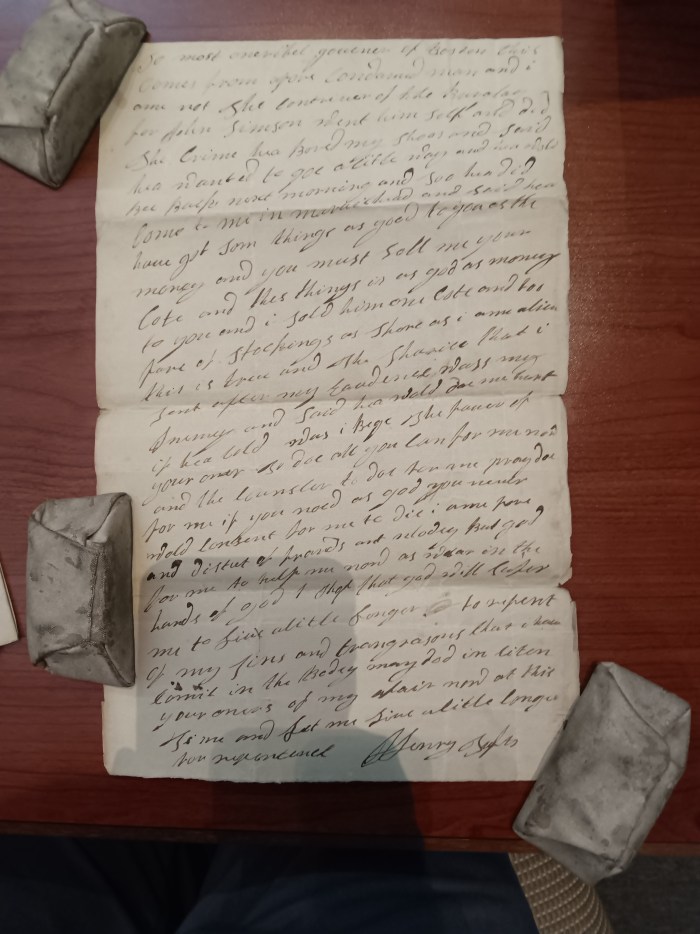 To most oneribel govener of Boston this
Comes from apore Condamd man and i
ame not the Contriner of the
for John Simson went him self and did
the Crime hea Bord my Shoos and Said
hea wanted to goe alitle way and hea wold
bee Back next morning and Soe hea did
Come to me in and Said hea
have got Som things as good to you as the
money and you must Sell me your
Cote and thes things is as god as money
to you and i Sold him one Cote and tos
pare of Stockings as Shore as i ame alive
this is treu and the that i
Sent after my wass my
Enemy and Said hea wold doe me hurt
if hea Cold was i Bege the pouer of
your oner to doe all you Can for me now
and the Counsler to doe for me pray doe
for me if you noed as god you never
wold Consent for me to die i ame pore
and distut of frands ant nobodey But god
for me to help me now as in the
hands of god I that god will Sufer
me to Live alitle Longer to repent
of my Sins and trangrasons that i have
Comit in the Bodey may dod in
your oners of my now at this
time and Let me Live alitle Longer
for Henry